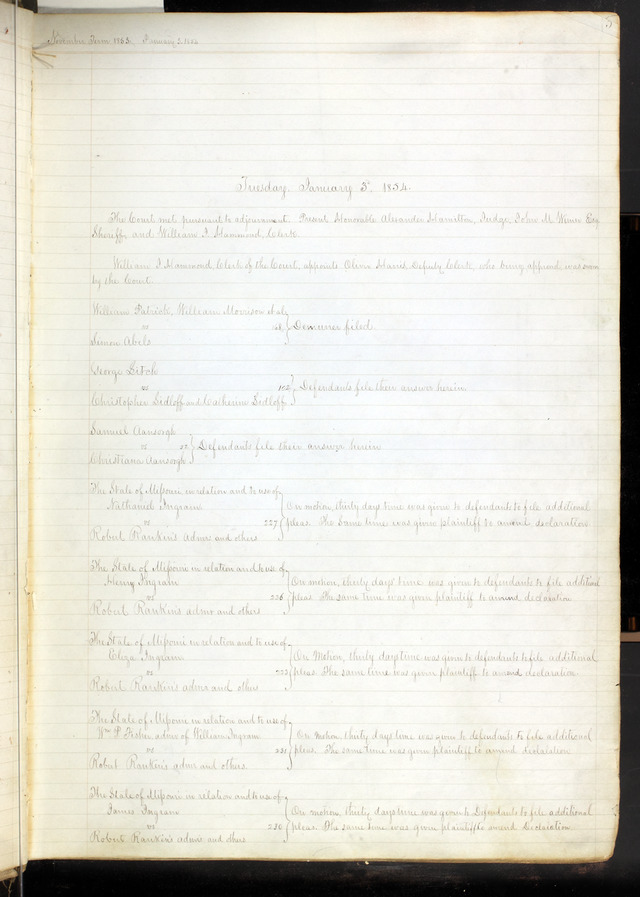 5
November Term 1853. January 3. 1854
Tuesday, January 3d, 1854.
The Court met pursuant to adjournment. Present Honorable Alexander Hamilton, Judge, John M Wimer Esq
Sheriff, and William J. Hammond, Clerk.
William J Hammond Clerk of the Court, appoints Oliver Harris Deputy Clerk, who being approved was sworn
by the Court.
William Patrick, William Morrison et al
vs Demurrer filed.
Simon Abels
George
vs 102 Defendants file their answer herein
Christopher Sidloff and Catherine Sidloff
Samuel Aansorgh
vs 22 Defendants file their answer herein
Christiana Aansorgh
The State of Missouri in relation and to use of
Nathaniel Ingram On motion, thirty days time was given to defendants to file additional
vs 227 pleas. The same time was given plaintiff to amend declaration.
Robert Rankin's admrs and others
The State of Missouri in relation and to use of
Henry Ingram On motion, thirty days time was given to defendants to file additional
vs 226 pleas. The same time was given plaintiff to amend declaration
Robert Rankin's admr and others
The State of Missouri in relation and to use of
Eliza Ingram On Motion, thirty days time was given to defendants to file additional
vs pleas. The same time was given plaintiff to amend declaration.
Robert Rankin's admrs and others
The State of Missouri in relation and to use of
Wm P. Fisher admr of William Ingram On motion, thirty days time was given to defendants to file additional
vs 231 pleas. The same time was given plaintiff to amend declaration
Robert Rankin's admrs and others.
The State of Missouri in relation and to use of
James Ingram On motion, thirty days time was given to Defendants to file additional
vs 230 pleas. The same time was given plaintiff to amend Declaration.
Robert Rankin's admrs and others